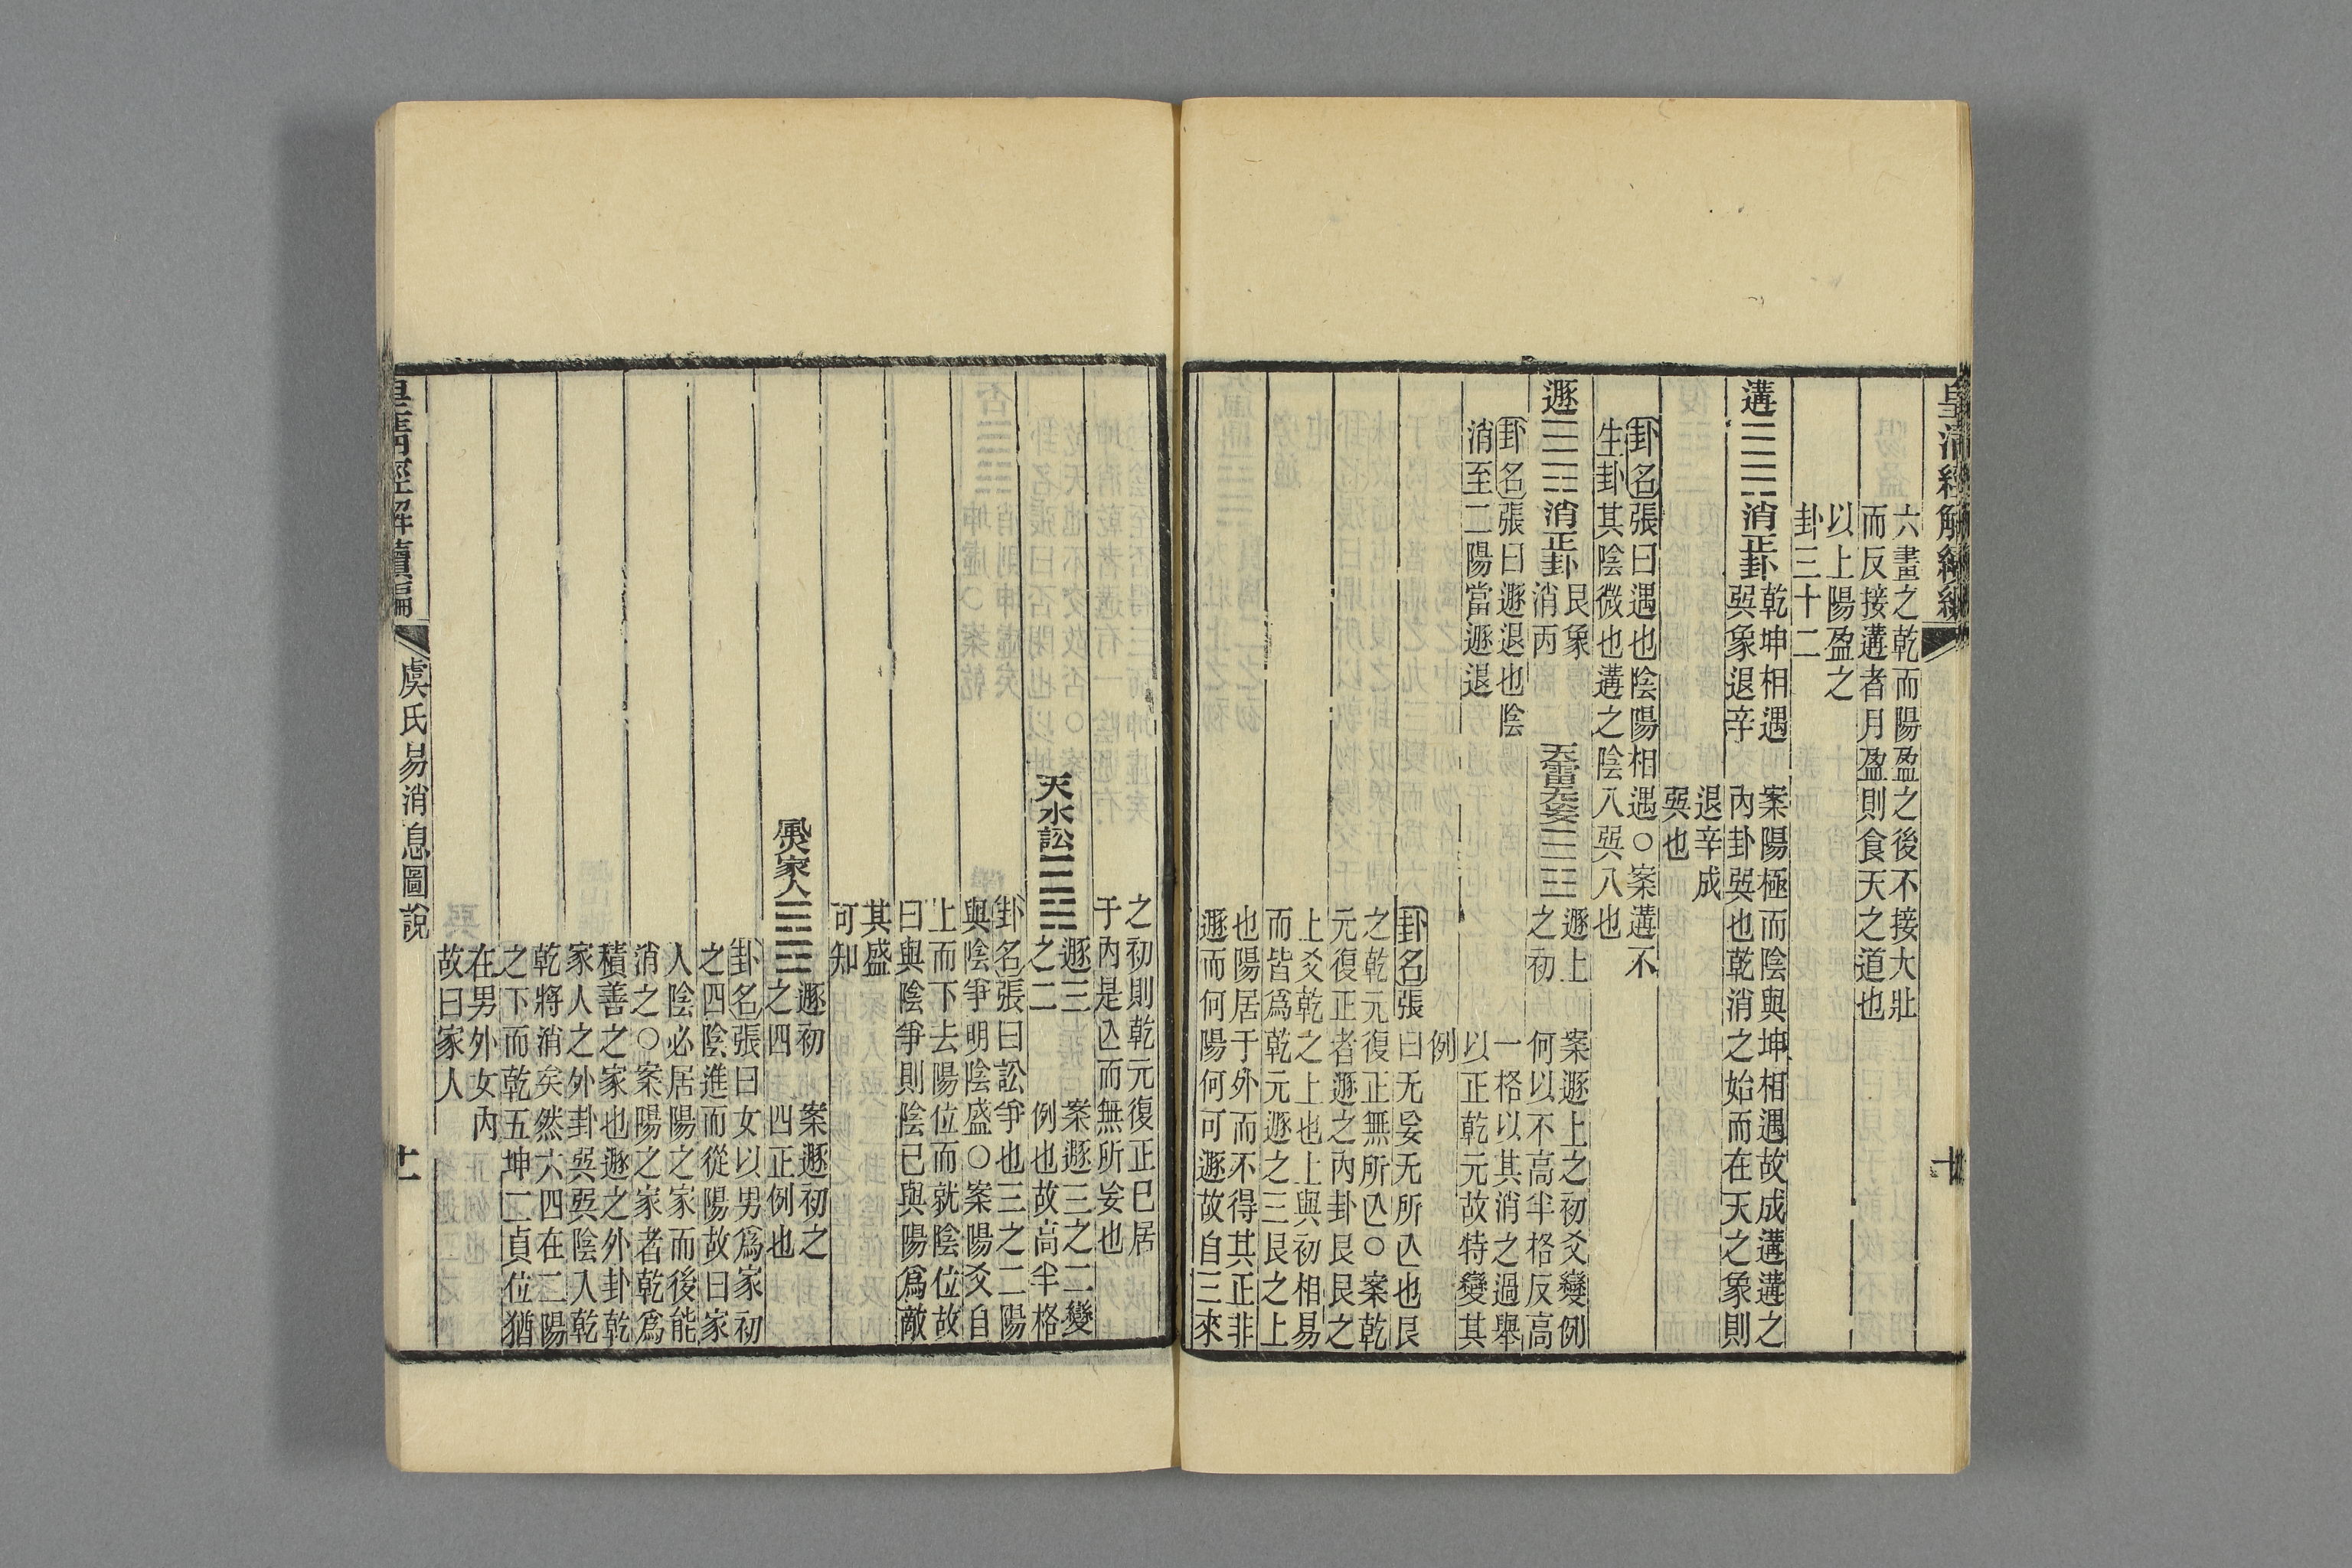 皇清經解續編
六畫之乾而陽盈之後不接大壯
而反接遘者月盈則食天之道也
以上陽盈之
卦三十二
遘䷫消正卦
乾坤相遇
巽象退辛
案陽極而陰與坤相遇故成遘遘之
內卦巽也乾消之始而在天之象則
退辛成
巽也
卦名張曰遇也陰陽相遇○案遘不
生卦其陰微也遘之陰八巽八也
遯䷠消正卦
艮象
消丙
天雷无妄䷘
遯上
之初
案遯上之初爻變例
何以不高半格反高
一格以其消之過舉
以正乾元故特變其
例
卦名張曰遯退也陰
消至二陽當遯退
卦名張曰无妄无所亾也艮
之乾元復正無所亾○案乾
元復正者遯之內卦艮艮之
上爻乾之上也上與初相易
而皆爲乾元遯之三艮之上
也陽居于外而不得其正非
遯而何陽何可遯故自三來
十
之初則乾元復正巳居
于內是亾而無所妄也
天水訟䷅
遯三
之二
案遯三之二變
例也故高半格
卦名張曰訟爭也三之二陽
與陰爭明陰盛○案陽爻自
上而下去陽位而就陰位故
曰與陰爭則陰已與陽爲敵
其盛
可知
風火家人䷤
遯初
之四
案遯初之
四正例也
卦名張曰女以男爲家初
之四陰進而從陽故曰家
人陰必居陽之家而後能
消之○案陽之家者乾爲
積善之家也遯之外卦乾
家人之外卦巽巽陰入乾
乾將消矣然六四在二陽
之下而乾五坤二貞位猶
在男外女內
故曰家人
皇清經解續編
虞氏易消息圖說
十一